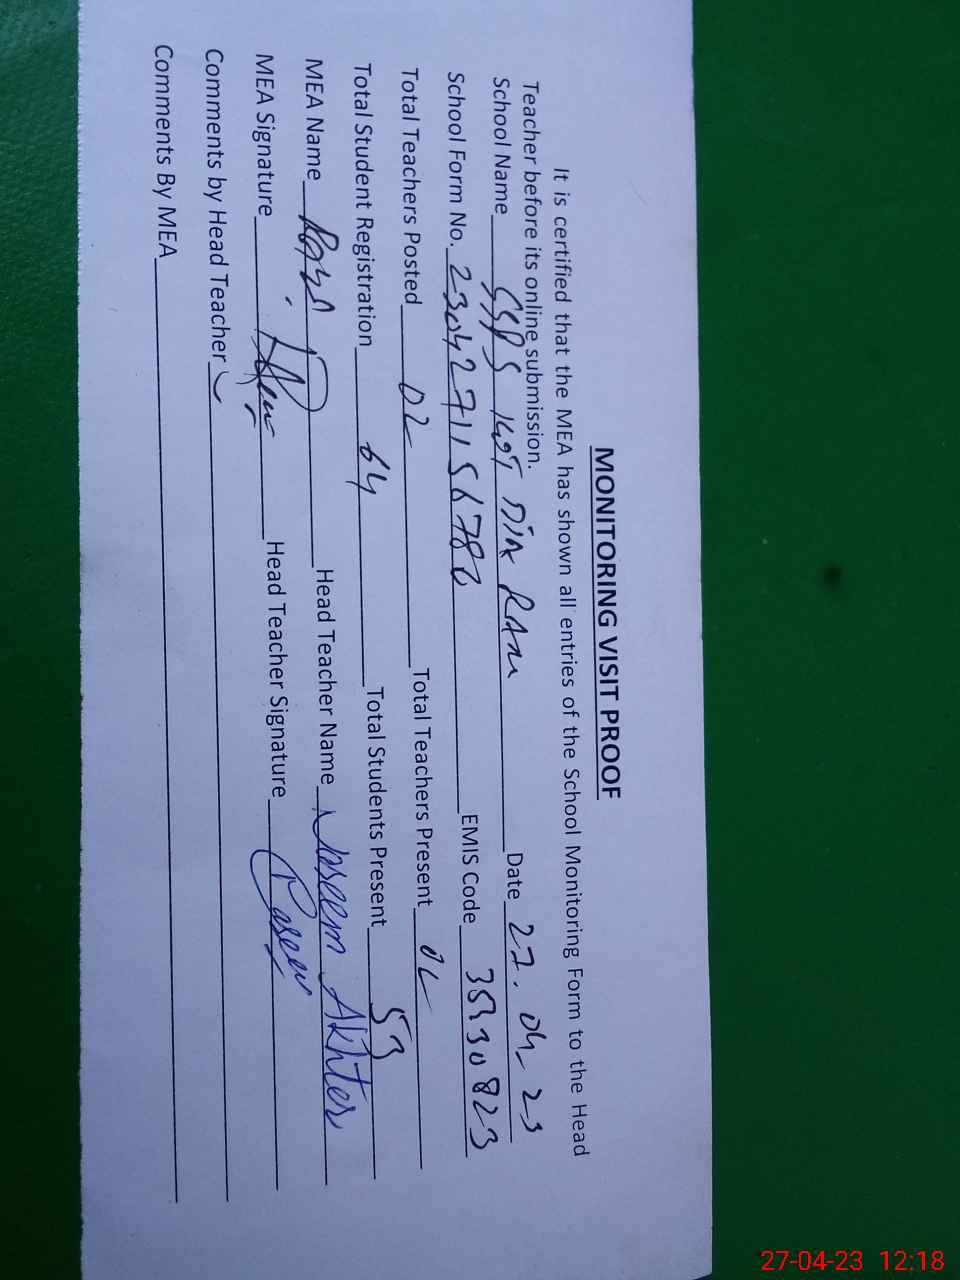 MONITORING VISIT PROOF
It is certified that the MEA has shown all entries of the School Monitoring Form to the Head
Teacher before its online submission.
School Name GGPS KOT DIN Date 27.04-23
School Form No. EMIS Code 35330823
Total Teachers Posted 02 Total Teachers Present 02
Total Student Registration 64 Total Students Present 53
MEA Name Head Teacher Name Naseem Akhter
MEA Signature Head Teacher Signature
Comments by Head Teacher
Comments By MEA
27-04-23 12:18